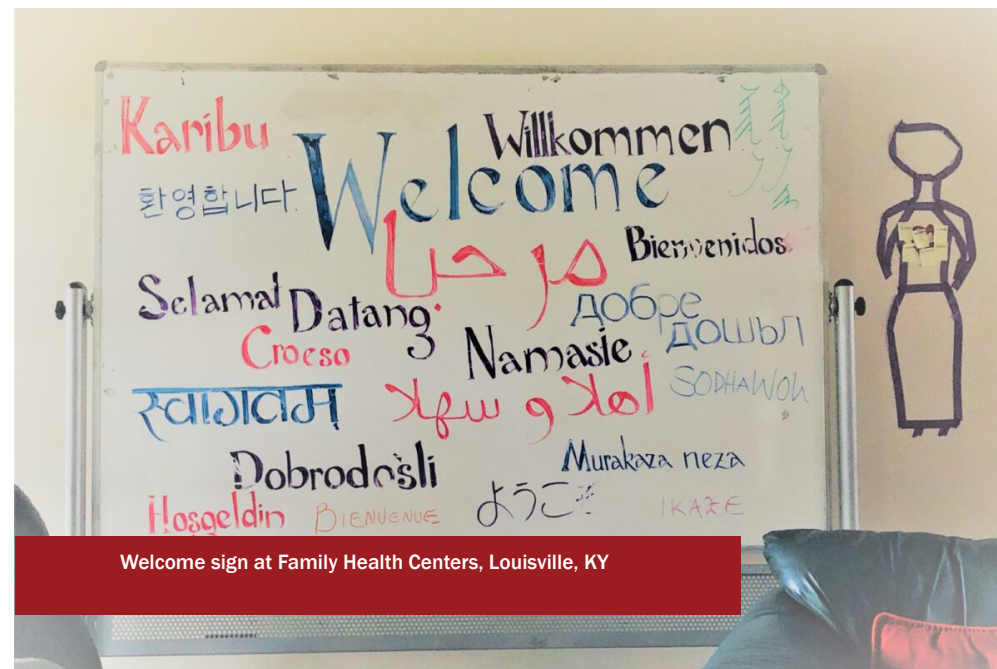 Karibu
Willkommen
Welcome
환영합니다.
مرحبا
Bienvenidos
Selamat Datang
добре
дошъл
Croeso
Namaste
أهلا و سهلا
SODHAWOW
स्वागतम्
Dobrodošli
Murakaza neza
Hoşgeldin
BIENVENUE
ようこそ
IKAZE
Welcome sign at Family Health Centers, Louisville, KY